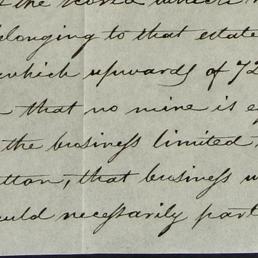 the world which
belonging to that estate
which upwards of 72
that no mine is
the business limited
that business
would necessarily part